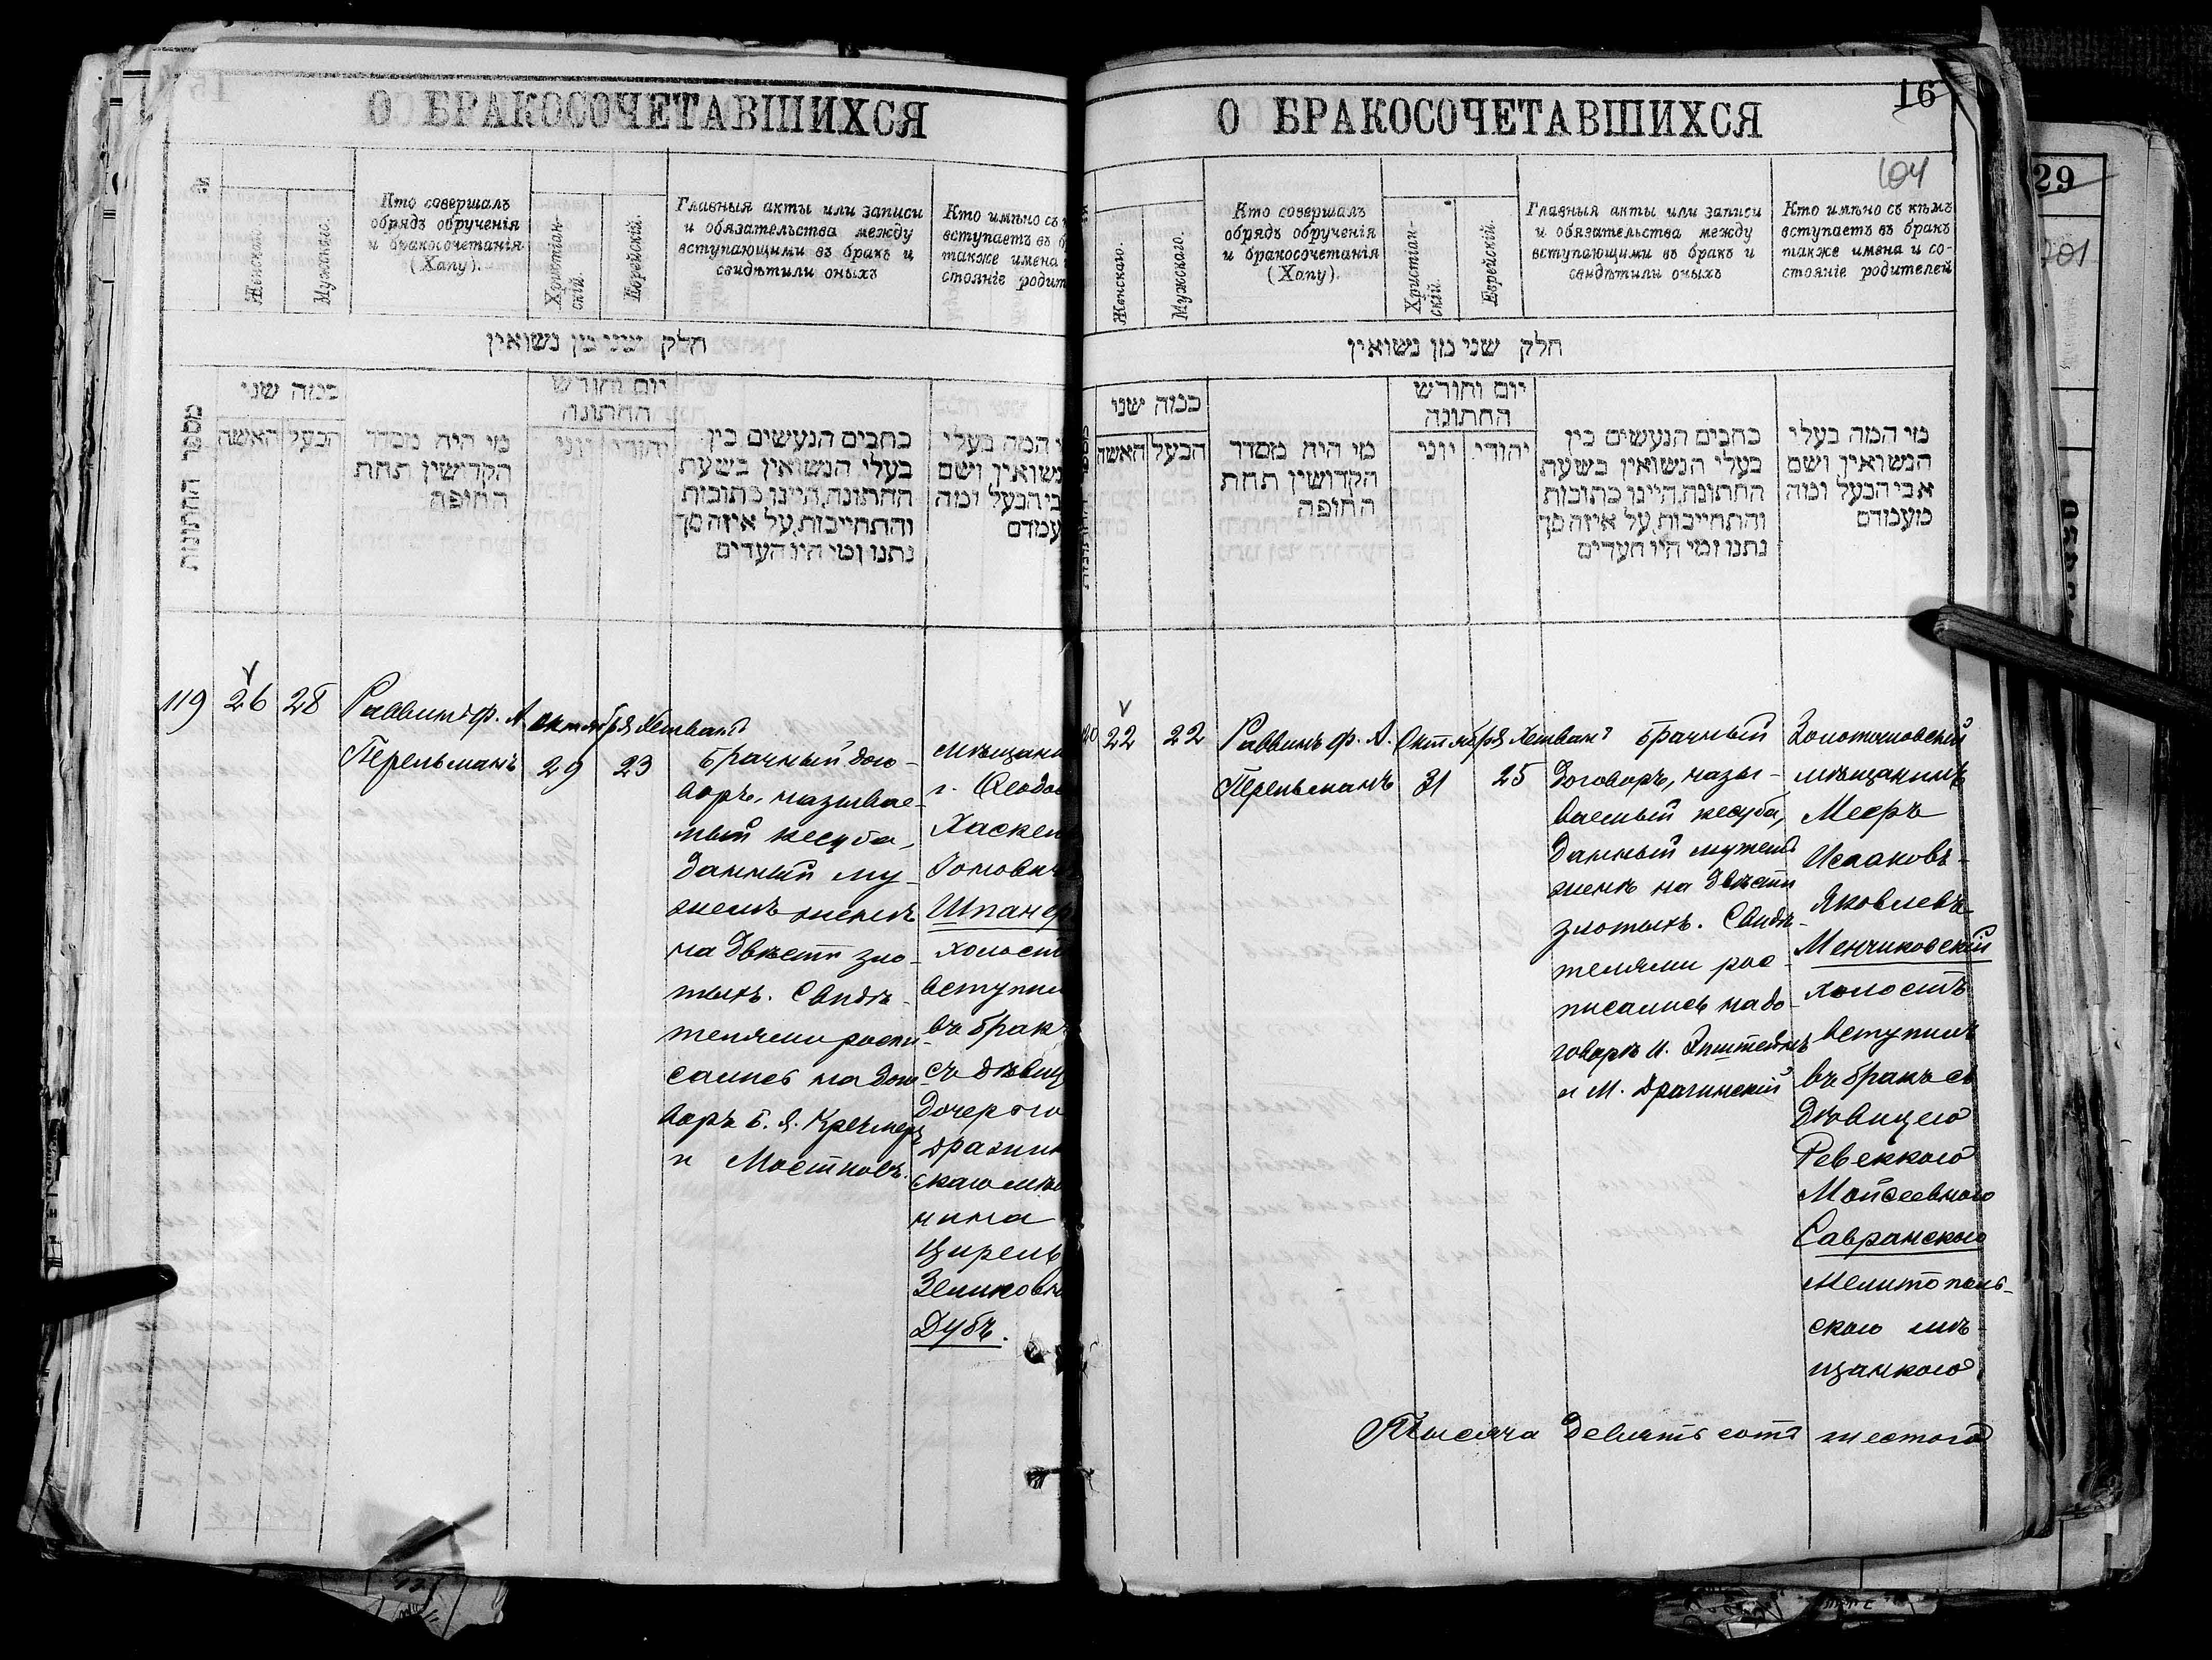 О БРАКОСОЧЕТАВШИХСЯ
№
Женскаго.
Мужскаго.
Кто совершалъ
обрядъ обрученія
и бракосочетанія
(Хапу).
Христіан-
скій.
Еврейскій.
Главныя акты или записи
и обязательства между
вступающими въ бракъ и
свидѣтили оныхъ
Кто имѣно съ
вступаетъ въ
также имена
стояніе родит
חלק שני מן נשואין
מספר החתונות
כמה שני
האשה
הבעל
מי היה מסדר
הקדושין תחת
החופה
יום וחורש
החתונה
יוני
יהודי
כתבים הנעשים בין
בעלי הנשואין בשעת
החתונה, היינו כתובות
והתחייבות, על איזה סך
נתנו ומי היו העדים
י המה בעלי
נשואין ושם
בי הבעל ומה
עמדם
119
26
28
Раввинъ ф. А.
Перельманъ
Октября
29
Хешванъ
23
Брачный дого-
воръ, называе-
мый кесуба,
данный му-
жемъ женѣ
на двѣсти зло-
тыхъ. Свидѣ-
телями распи-
сались на дого
ворѣ Б. Я. Кремеръ
и Мостковъ.
мѣщани
г. Ѳеодос
Хаскел
Шпанер
холост
вступил
въ бракъ
съ дѣвиц
дочерью
скаго мѣщ
нина
Цирель
Зеликовн
Дубъ.
О БРАКОСОЧЕТАВШИХСЯ
16
104
Женскаго.
Мужскаго.
Кто совершалъ
обрядъ обрученія
и бракосочетанія
(Хапу).
Христіан-
скій.
Еврейскій.
Главныя акты или записи
и обязательства между
вступающими въ бракъ и
свидѣтили оныхъ
Кто имѣно съ кѣмъ
вступаетъ въ бракъ
также имена и со-
стояніе родителей
חלק שני מן נשואין
כמה שני
האשה
הבעל
מי היה מסדר
הקדושין תחת
החופה
יום וחורש
החתונה
יוני
יהודי
כתבים הנעשים בין
בעלי הנשואין בשעת
החתונה, היינו כתובות
והתחייבות, על איזה סך
נתנו ומי היו העדים
מי המה בעלי
הנשואין ושם
אבי הבעל ומה
מעמדם
22
22
Раввинъ ф. А.
Перельманъ
Октября
31
Хешванъ
25
Брачный
договоръ, назы-
ваемый кесуба,
данный мужемъ
женѣ на двѣсти
злотыхъ. Свидѣ-
телями рос-
писались на до-
говорѣ И. Эпштейнъ
и М. Драгинскій
Золотоновскій
мѣщанинъ
Мееръ
Исааковъ-
Яковлевъ
Менчиковскій
холостъ
вступилъ
въ бракъ съ
дѣвицею
Ревеккою
Мойсеевною
Савранскою
мелитополь-
скою мѣ-
щанкою
Тысяча девятьсотъ шестого
29
701